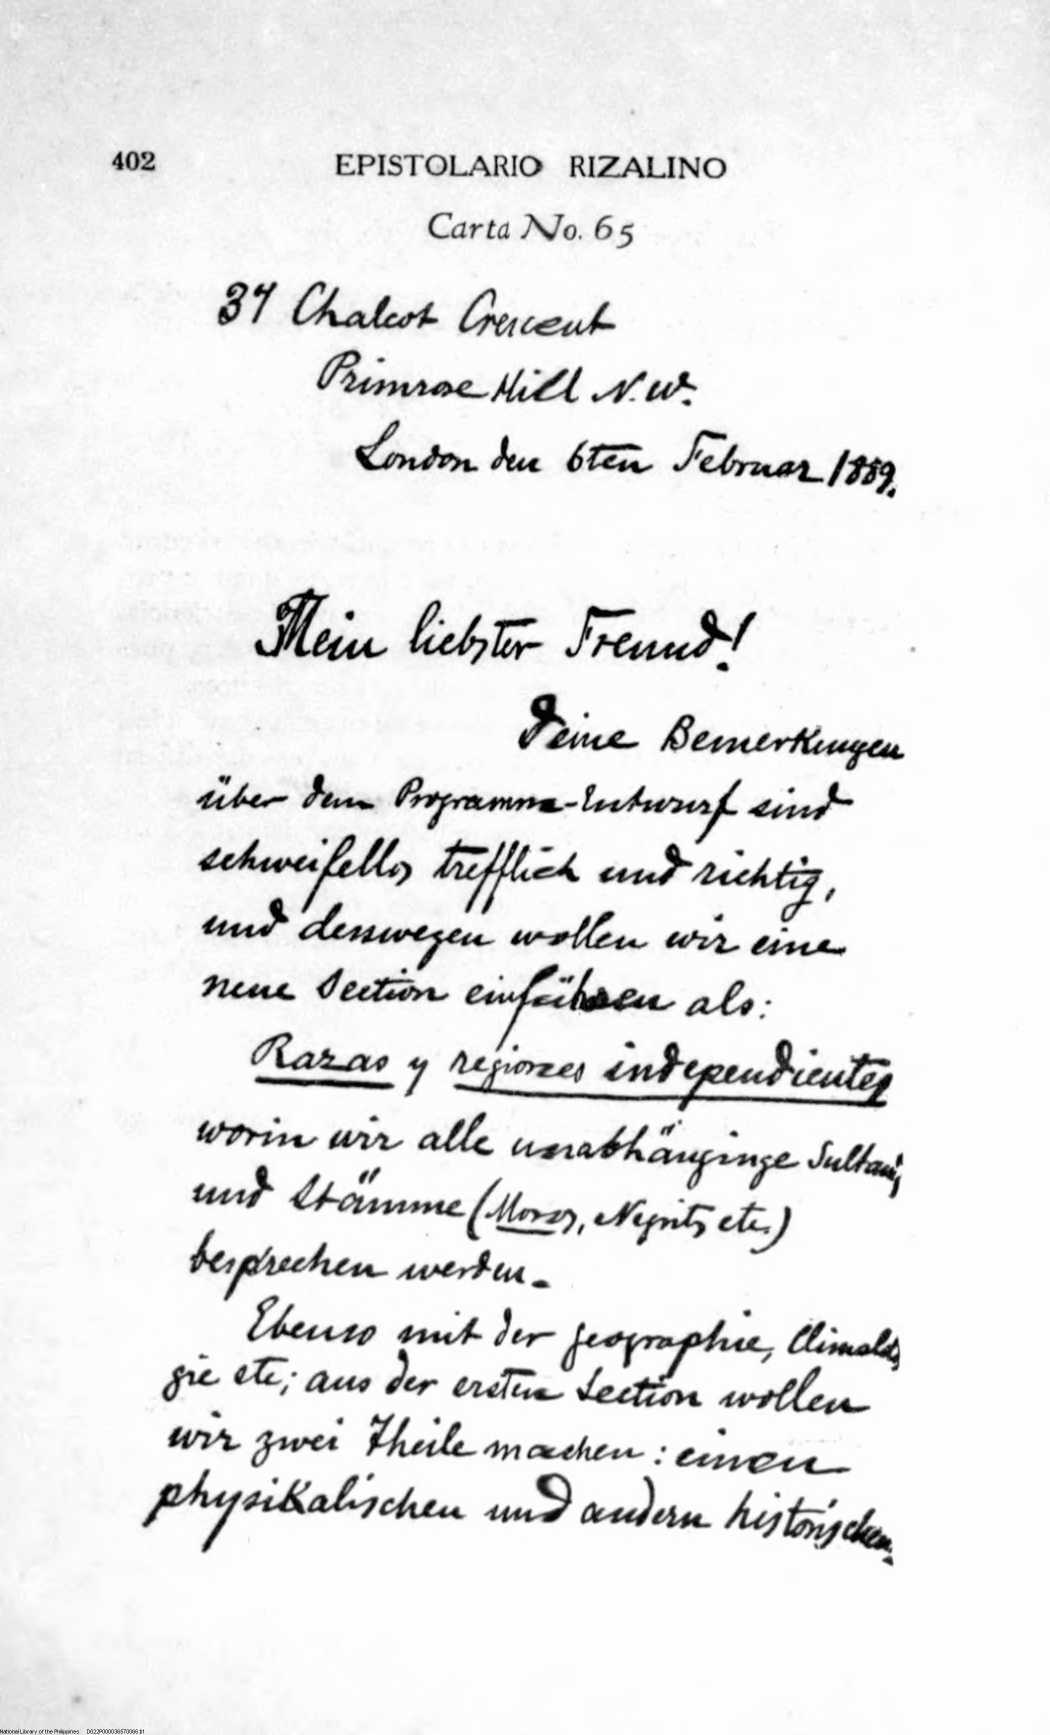 402
EPISTOLARIO RIZALINO
Carta No. 65
37 Chalcot Crescent
Primrose Hill N.W.
London den 6ten Februar 1889.
Mein liebster Freund!
Deine Bemerkungen
über dem Programm-Entwurf sind
schweifellos trefflich und richtig,
und desswegen wollen wir eine
neue Section einführen als:
Razas y regiones independientes
worin wir alle unabhänginge
und Stämme (Moros, Negritos etc.)
besprechen werden.
Ebenso mit der geographie, Climatolo-
gie etc; aus der ersten Section wollen
wir zwei Theile machen: einen
physikalischen und andern historischen.
National Library of the Philippines